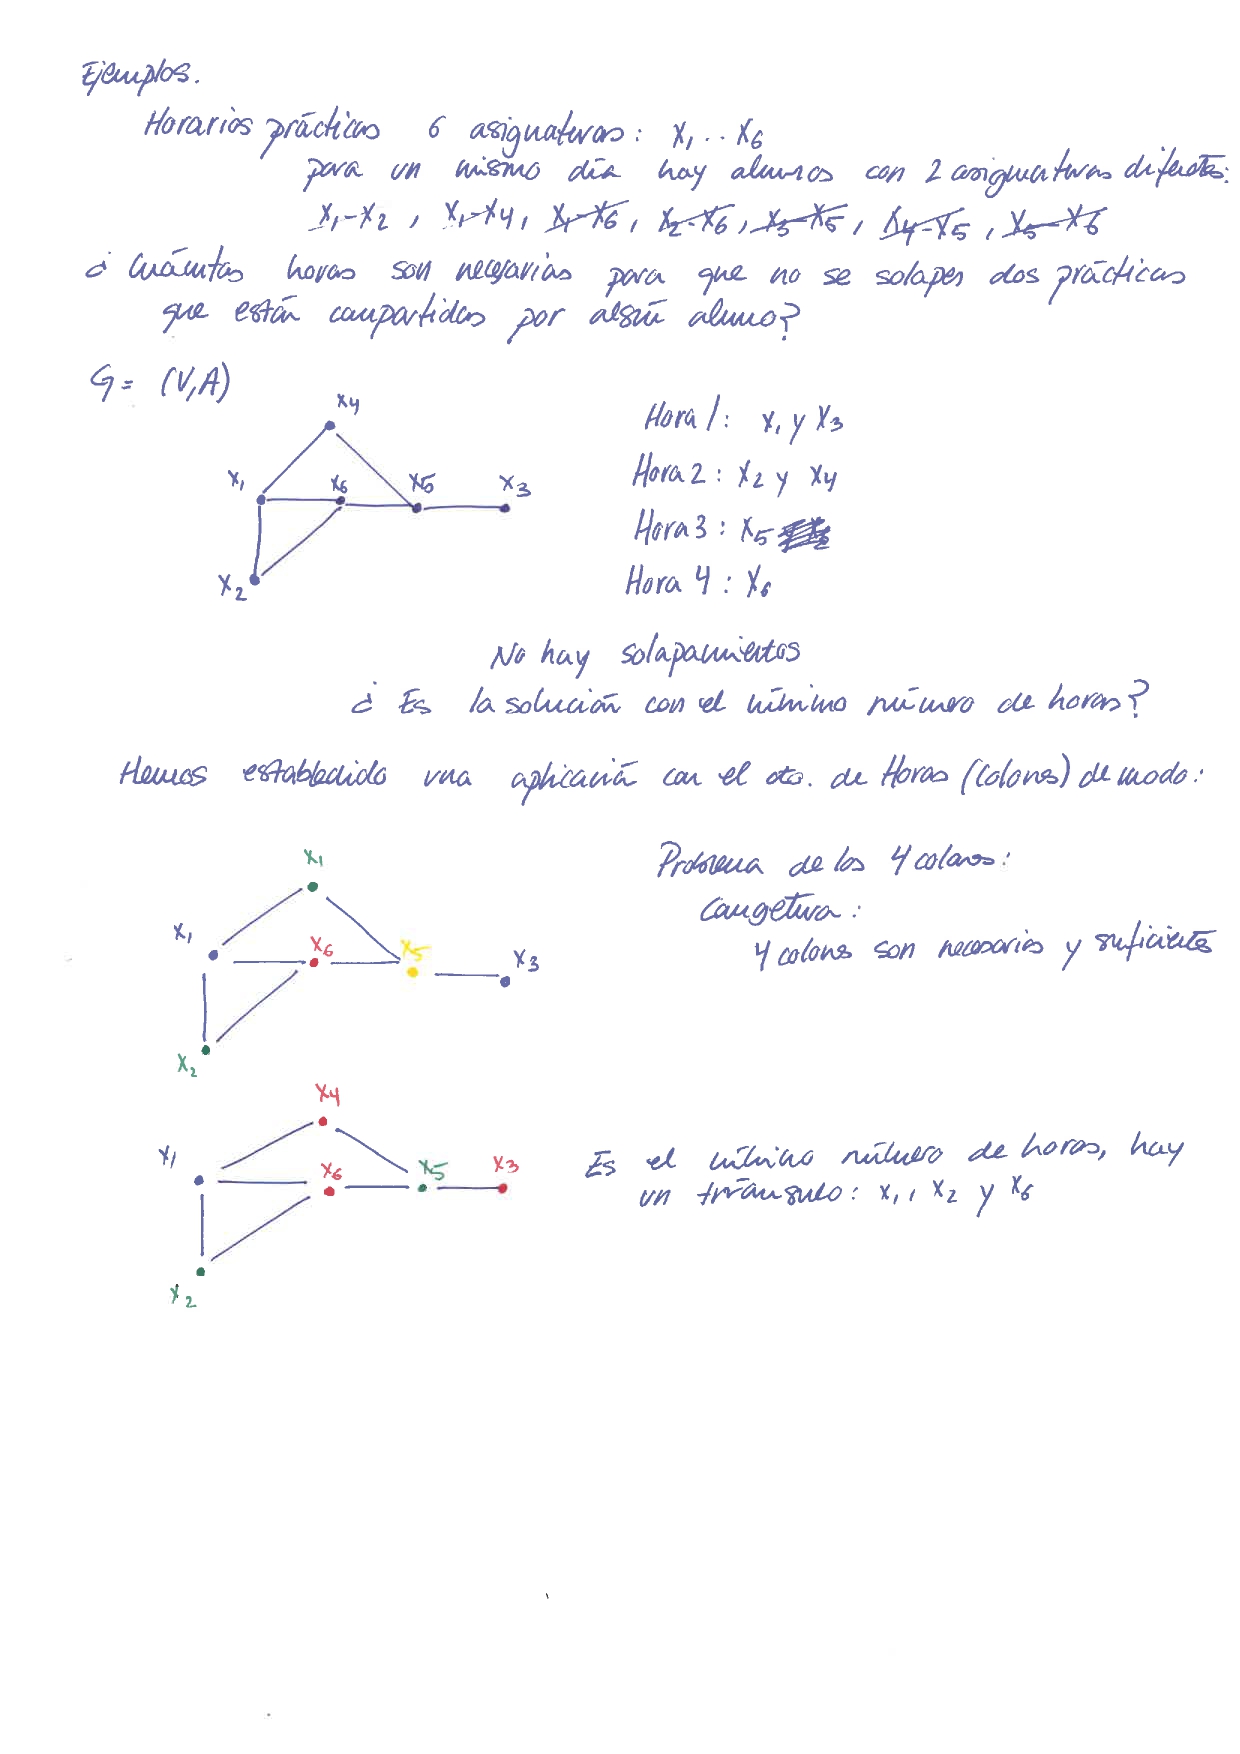 Ejemplos.
Horarios prácticas 6 asignaturas: x₁ .. x₆
para un mismo día hay alumnos con 2 asignaturas diferentes:
x₁-x₂, x₁-x₄, x₁-x₆, x₂-x₆, x₃-x₅, x₄-x₅, x₅-x₆
¿Cuántas horas son necesarias para que no se solapen dos prácticas
que están compartidas por algún alumno?
G = (V,A)
x₄
x₁
x₆
x₅
x₃
x₂
Hora 1: x₁ y x₃
Hora 2: x₂ y x₄
Hora 3: x₅
Hora 4: x₆
No hay solapamientos
¿Es la solución con el mínimo número de horas?
Hemos establedido una aplicación con el cto. de Horas (Colores) de modo:
x₁
x₁
x₆
x₅
x₃
x₂
Problema de los 4 colores:
Congetura:
4 colores son necesarios y suficientes
x₄
x₁
x₆
x₅
x₃
x₂
Es el mínimo número de horas, hay
un triángulo: x₁, x₂ y x₆